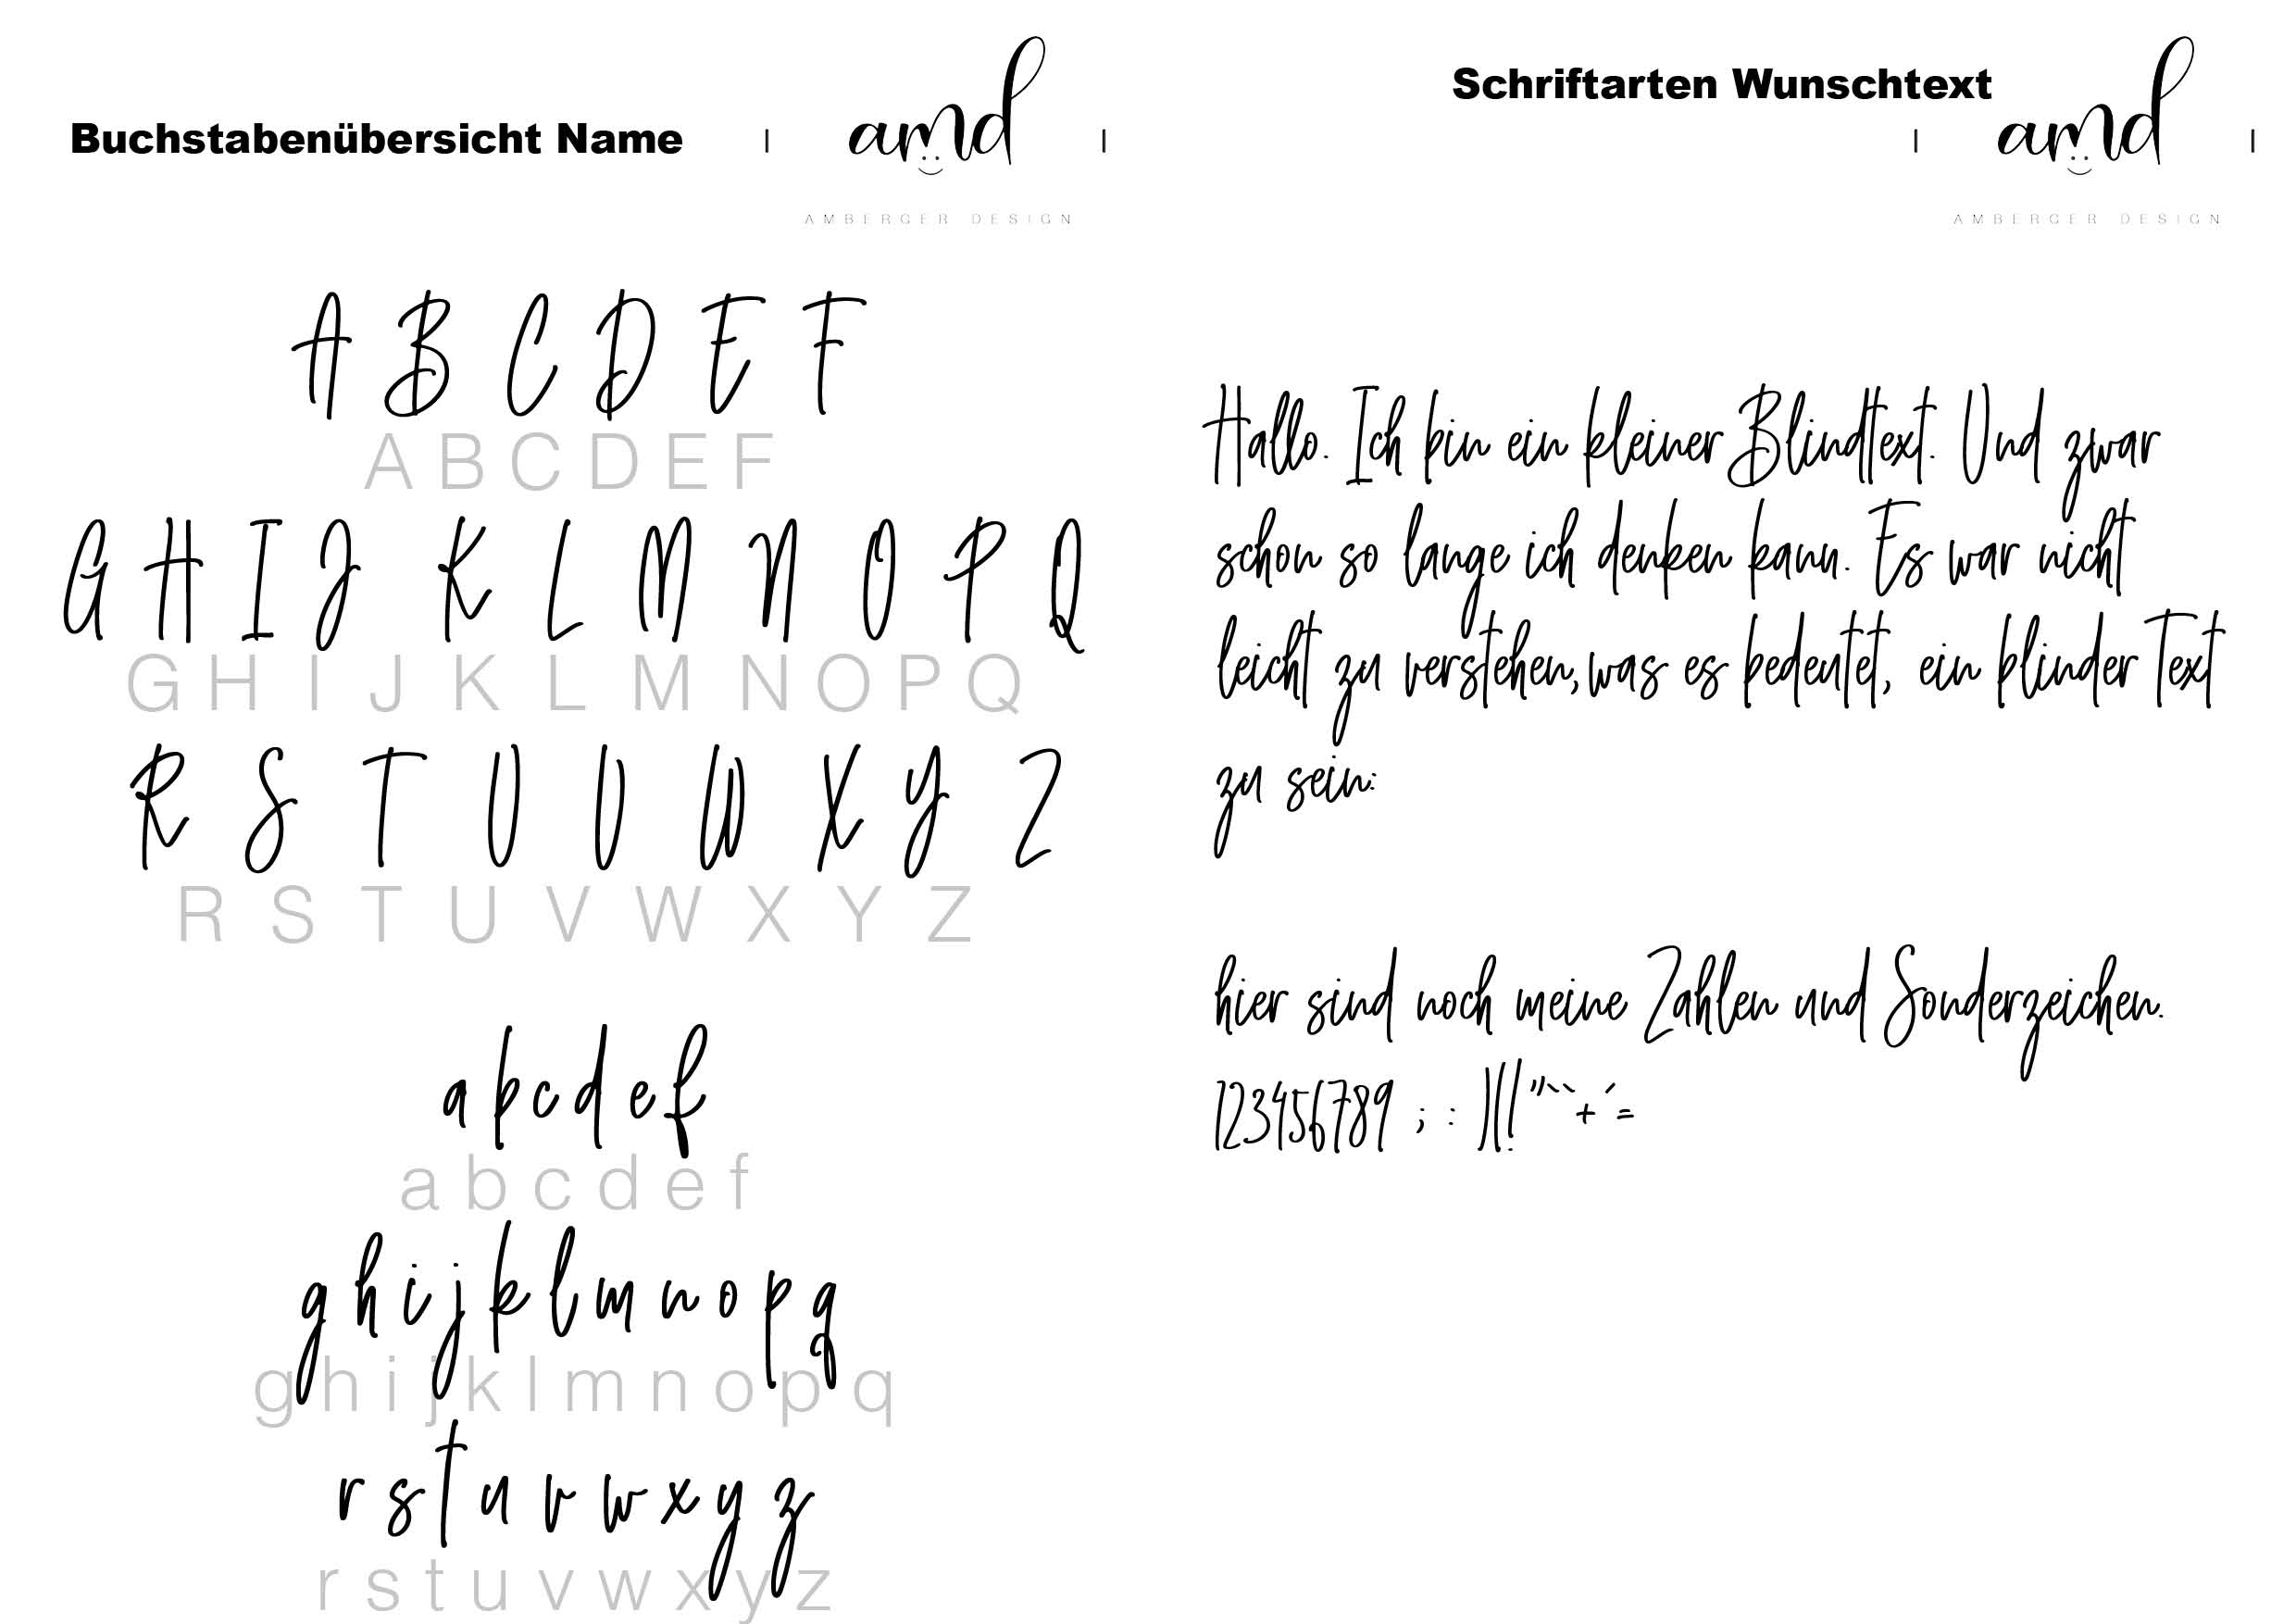 Buchstabenübersicht Name
amd
AMBERGER DESIGN
A B C D E F
A B C D E F
G H I J K L M N O P Q
G H I J K L M N O P Q
R S T U V W X Y Z
R S T U V W X Y Z
a b c d e f
a b c d e f
g h i j k l m n o p q
g h i j k l m n o p q
r s t u v w x y z
r s t u v w x y z
Schriftarten Wunschtext
amd
AMBERGER DESIGN
Hallo. Ich bin ein kleiner Blindtext. Und zwar
schon so lange ich denken kann. Es war nicht
leicht zu verstehen, was es bedeutet, ein blinder Text
zu sein:
hier sind noch meine Zahlen und Sonderzeichen.
123456789 ; :